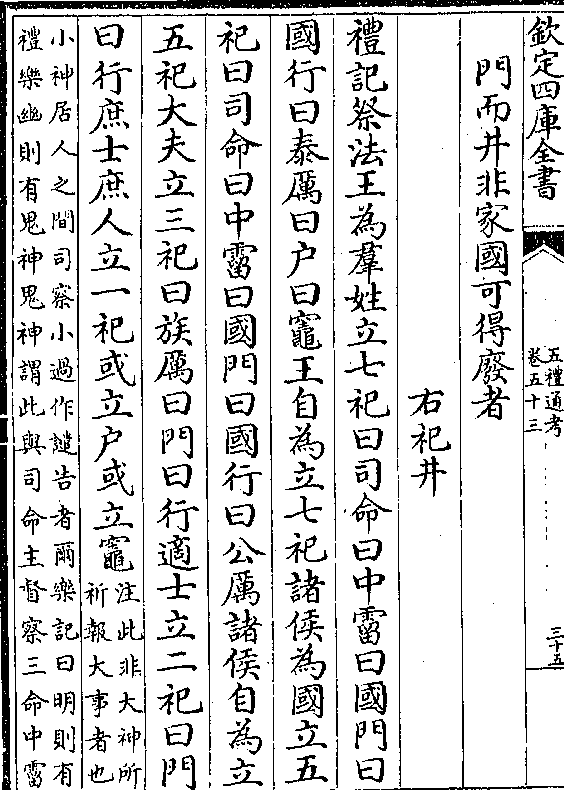 欽定四庫全書
五禮通考
卷五十三
三十五
門而井非家國可得廢者
右祀井
禮記祭法王為羣姓立七祀曰司命曰中霤曰國門曰
國行曰泰厲曰户曰竈王自為立七祀諸侯為國立五
祀曰司命曰中霤曰國門曰國行曰公厲諸侯自為立
五祀大夫立三祀曰族厲曰門曰行適士立二祀曰門
曰行庶士庶人立一祀或立户或立竈
注此非大神所
祈報大事者也
小神居人之間司察小過作譴告者爾樂記曰明則有
禮樂幽則有鬼神鬼神謂此與司命主督察三命中霤